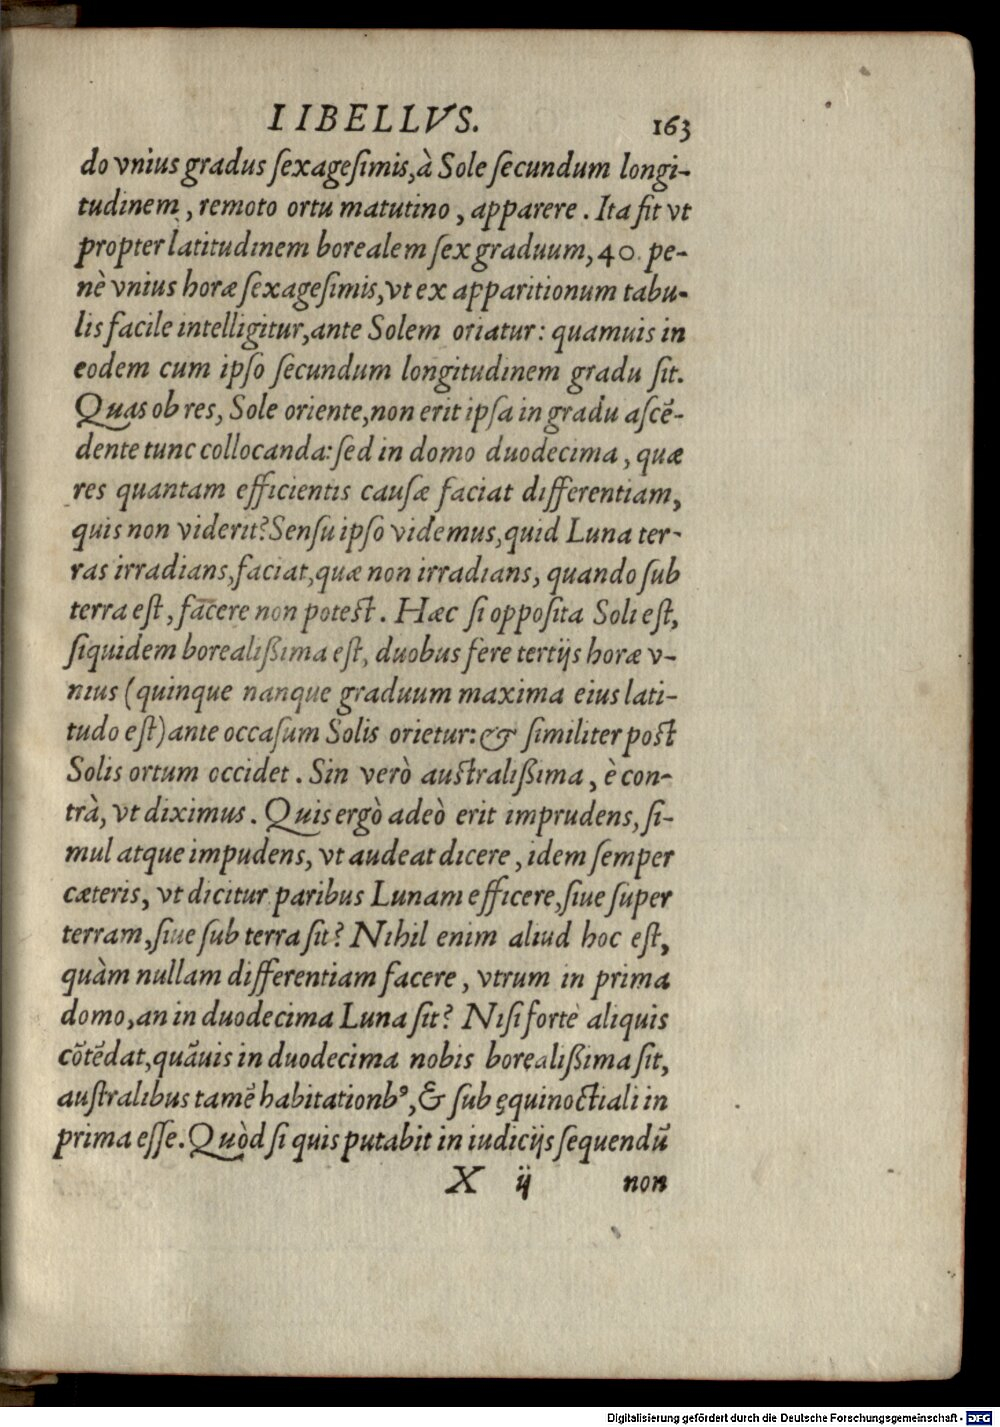 LIBELLVS. 163
do vnius gradus ſexageſimis, à Sole ſecundum longi-
tudinem, remoto ortu matutino, apparere. Ita fit vt
propter latitudinem borealem ſex graduum, 40. pe-
nè vnius horæ ſexageſimis, vt ex apparitionum tabu-
lis facile intelligitur, ante Solem oriatur: quamuis in
eodem cum ipſo ſecundum longitudinem gradu ſit.
Quas ob res, Sole oriente, non erit ipſa in gradu aſcẽ-
dente tunc collocanda: ſed in domo duodecima, quæ
res quantam efficientis cauſæ faciat differentiam,
quis non viderit? Senſu ipſo videmus, quid Luna ter-
ras irradians, faciat, quæ non irradians, quando ſub
terra eſt, facere non poteſt. Hæc ſi oppoſita Soli eſt,
ſiquidem borealißima eſt, duobus fere tertijs horæ v-
nius (quinque nanque graduum maxima eius lati-
tudo eſt) ante occaſum Solis orietur: & ſimiliter poſt
Solis ortum occidet. Sin verò auſtralißima, è con-
trà, vt diximus. Quis ergò adeò erit imprudens, ſi-
mul atque impudens, vt audeat dicere, idem ſemper
cæteris, vt dicitur paribus Lunam efficere, ſiue ſuper
terram, ſiue ſub terra ſit? Nihil enim aliud hoc eſt,
quàm nullam differentiam facere, vtrum in prima
domo, an in duodecima Luna ſit? Niſi fortè aliquis
cõtẽdat, quãuis in duodecima nobis borealißima ſit,
auſtralibus tamẽ habitationbꝰ, & ſub ęquinoctiali in
prima eſſe. Quòd ſi quis putabit in iudicijs ſequendũ
X ij non
Digitalisierung gefördert durch die Deutsche Forschungsgemeinschaft - DFG